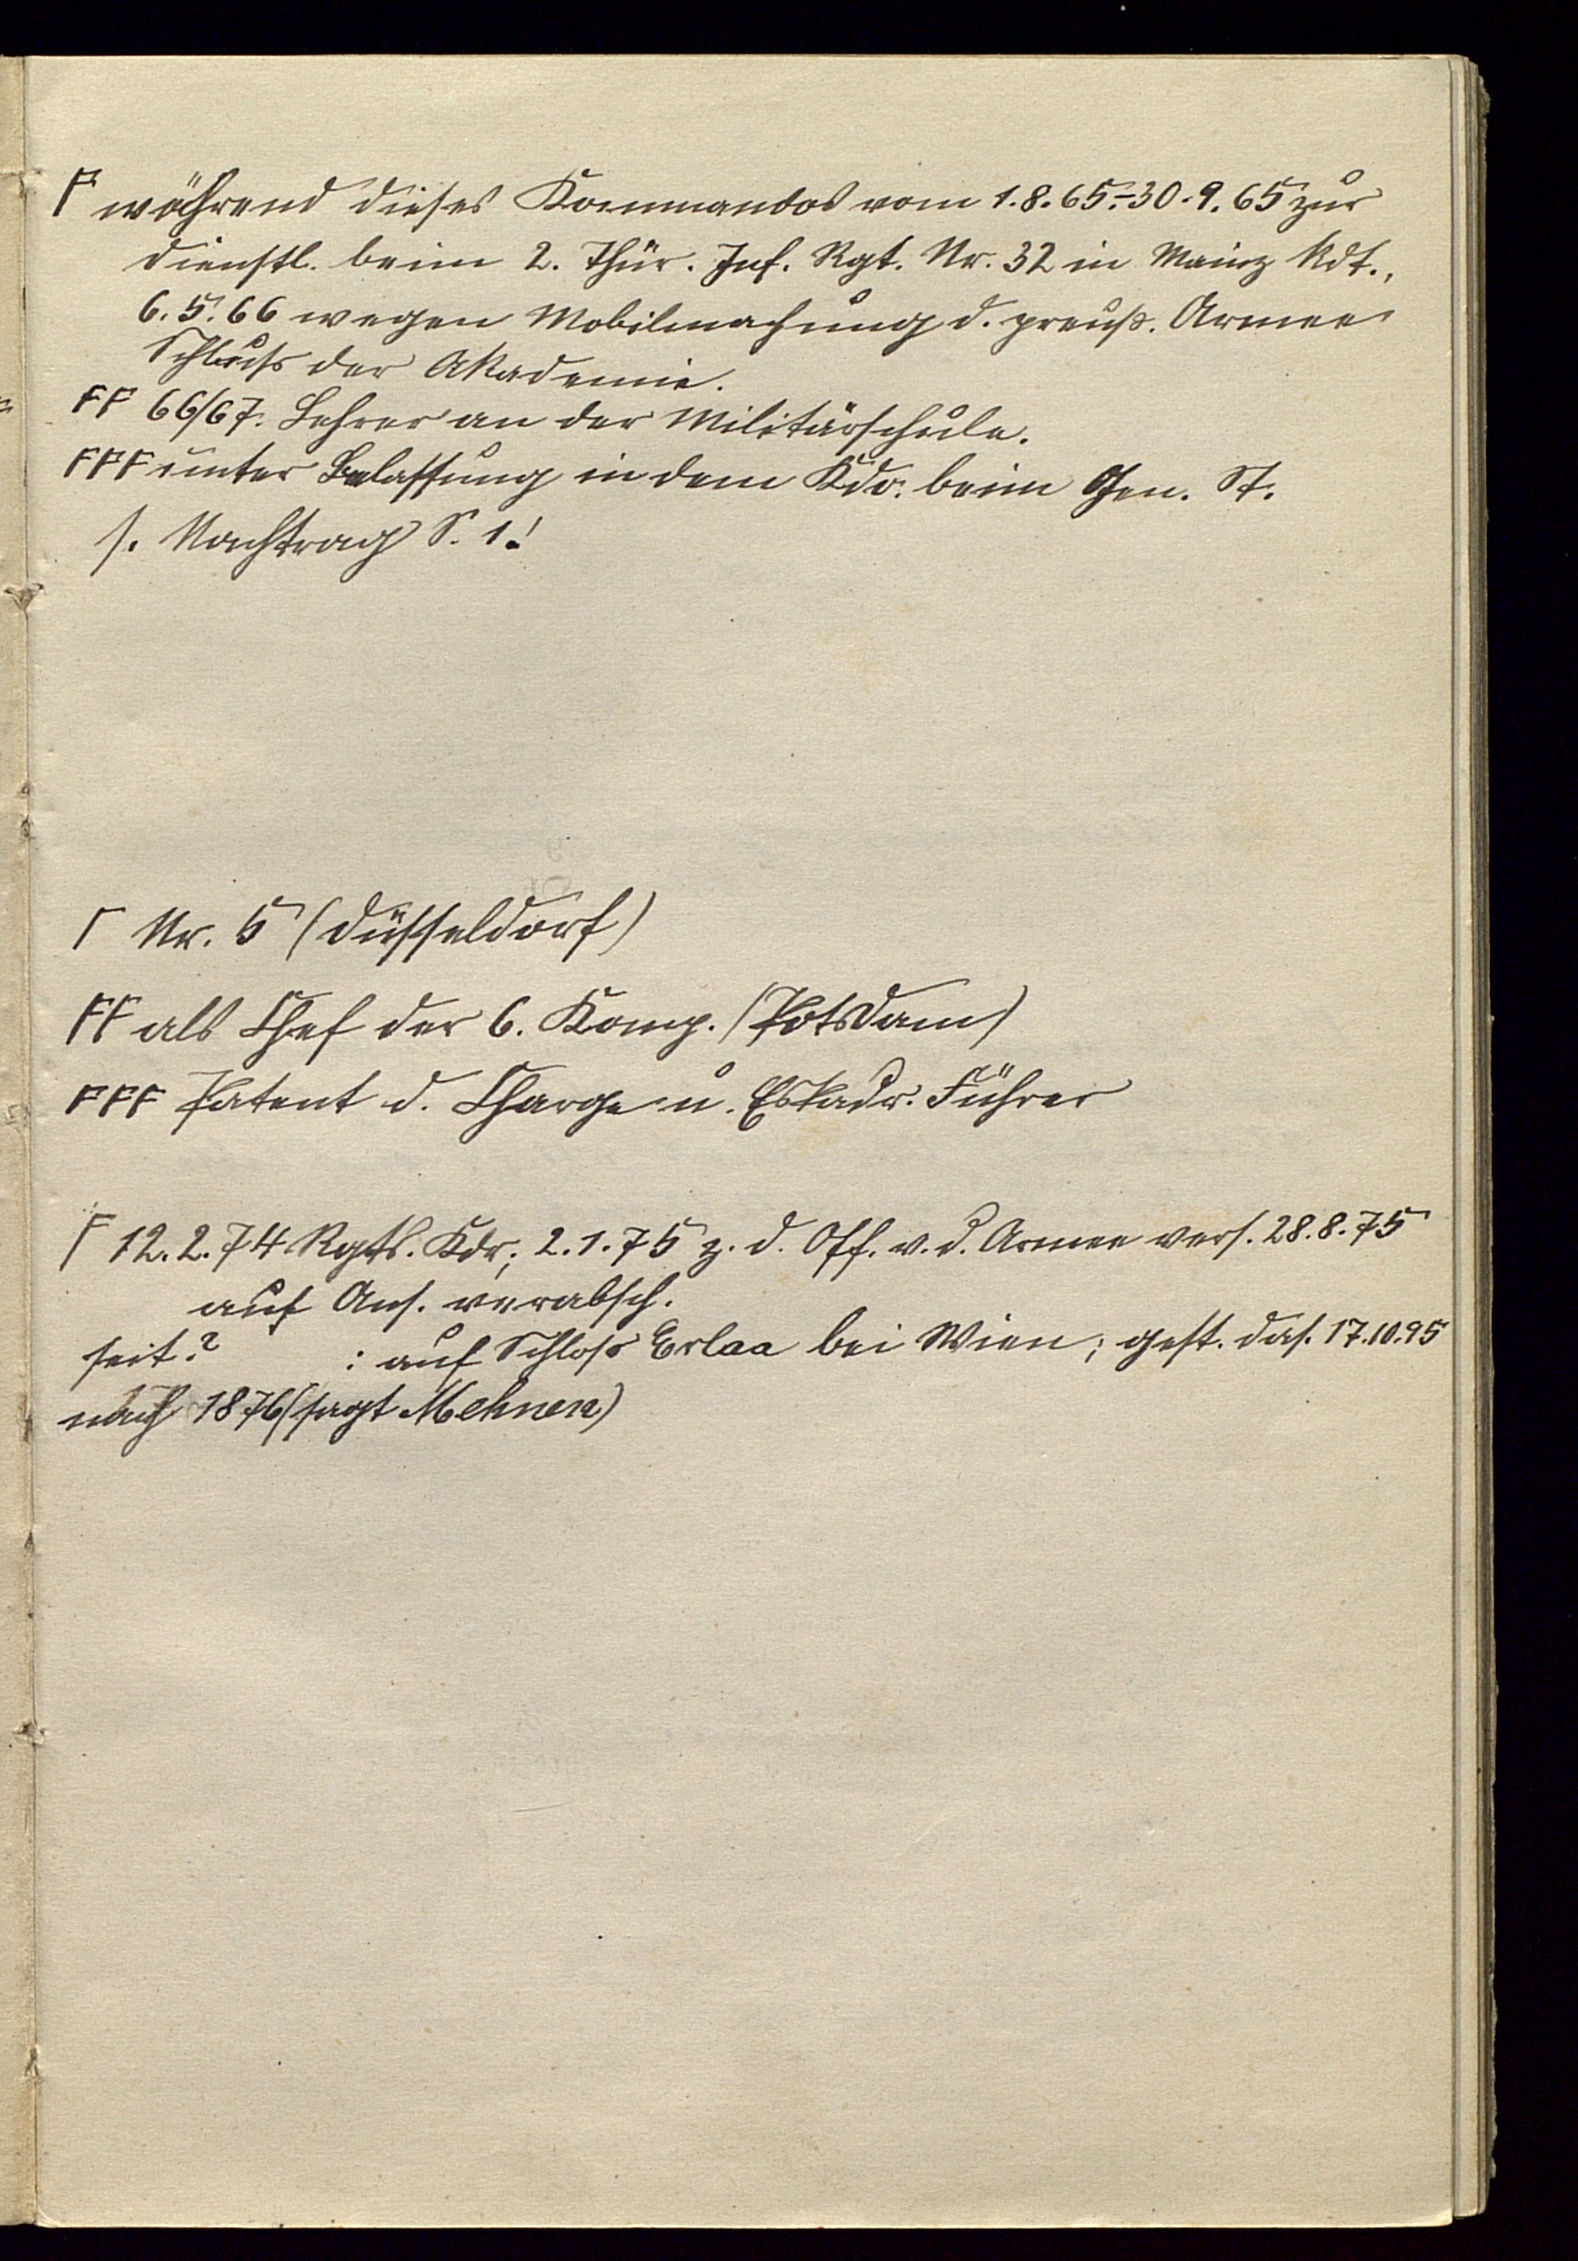 F während dieses Kommandos vom 1.8.65.-30.9.65 zur
Dienstl. beim 2. Thür. Inf. Rgt. Nr. 32 in Mainz kdt.,
6.5.66 wegen Mobilmachung d. preuß. Armee
Schluß der Akademie.
FF 66/67. Lehrer an der Militärschule.
FFF unter Belassung in dem Kdo. beim Gen. St.
s. Nachtrag S. 1!
Γ Nr. 5 (Düsseldorf)
FF als Chef der 6. Komp. (Potsdam)
FFF Patent d. Charge u. Eskadr. Führer
F 12.2.74 Rgts. Kdr; 2.1.75 z. d. Off. v. d. Armee vers. 28.8.75
auf Ans. verabsch.
seit? : auf Schloß Erlaa bei Wien; gest. das. 17.10.95
nach 1876 (sagt Mehnen)